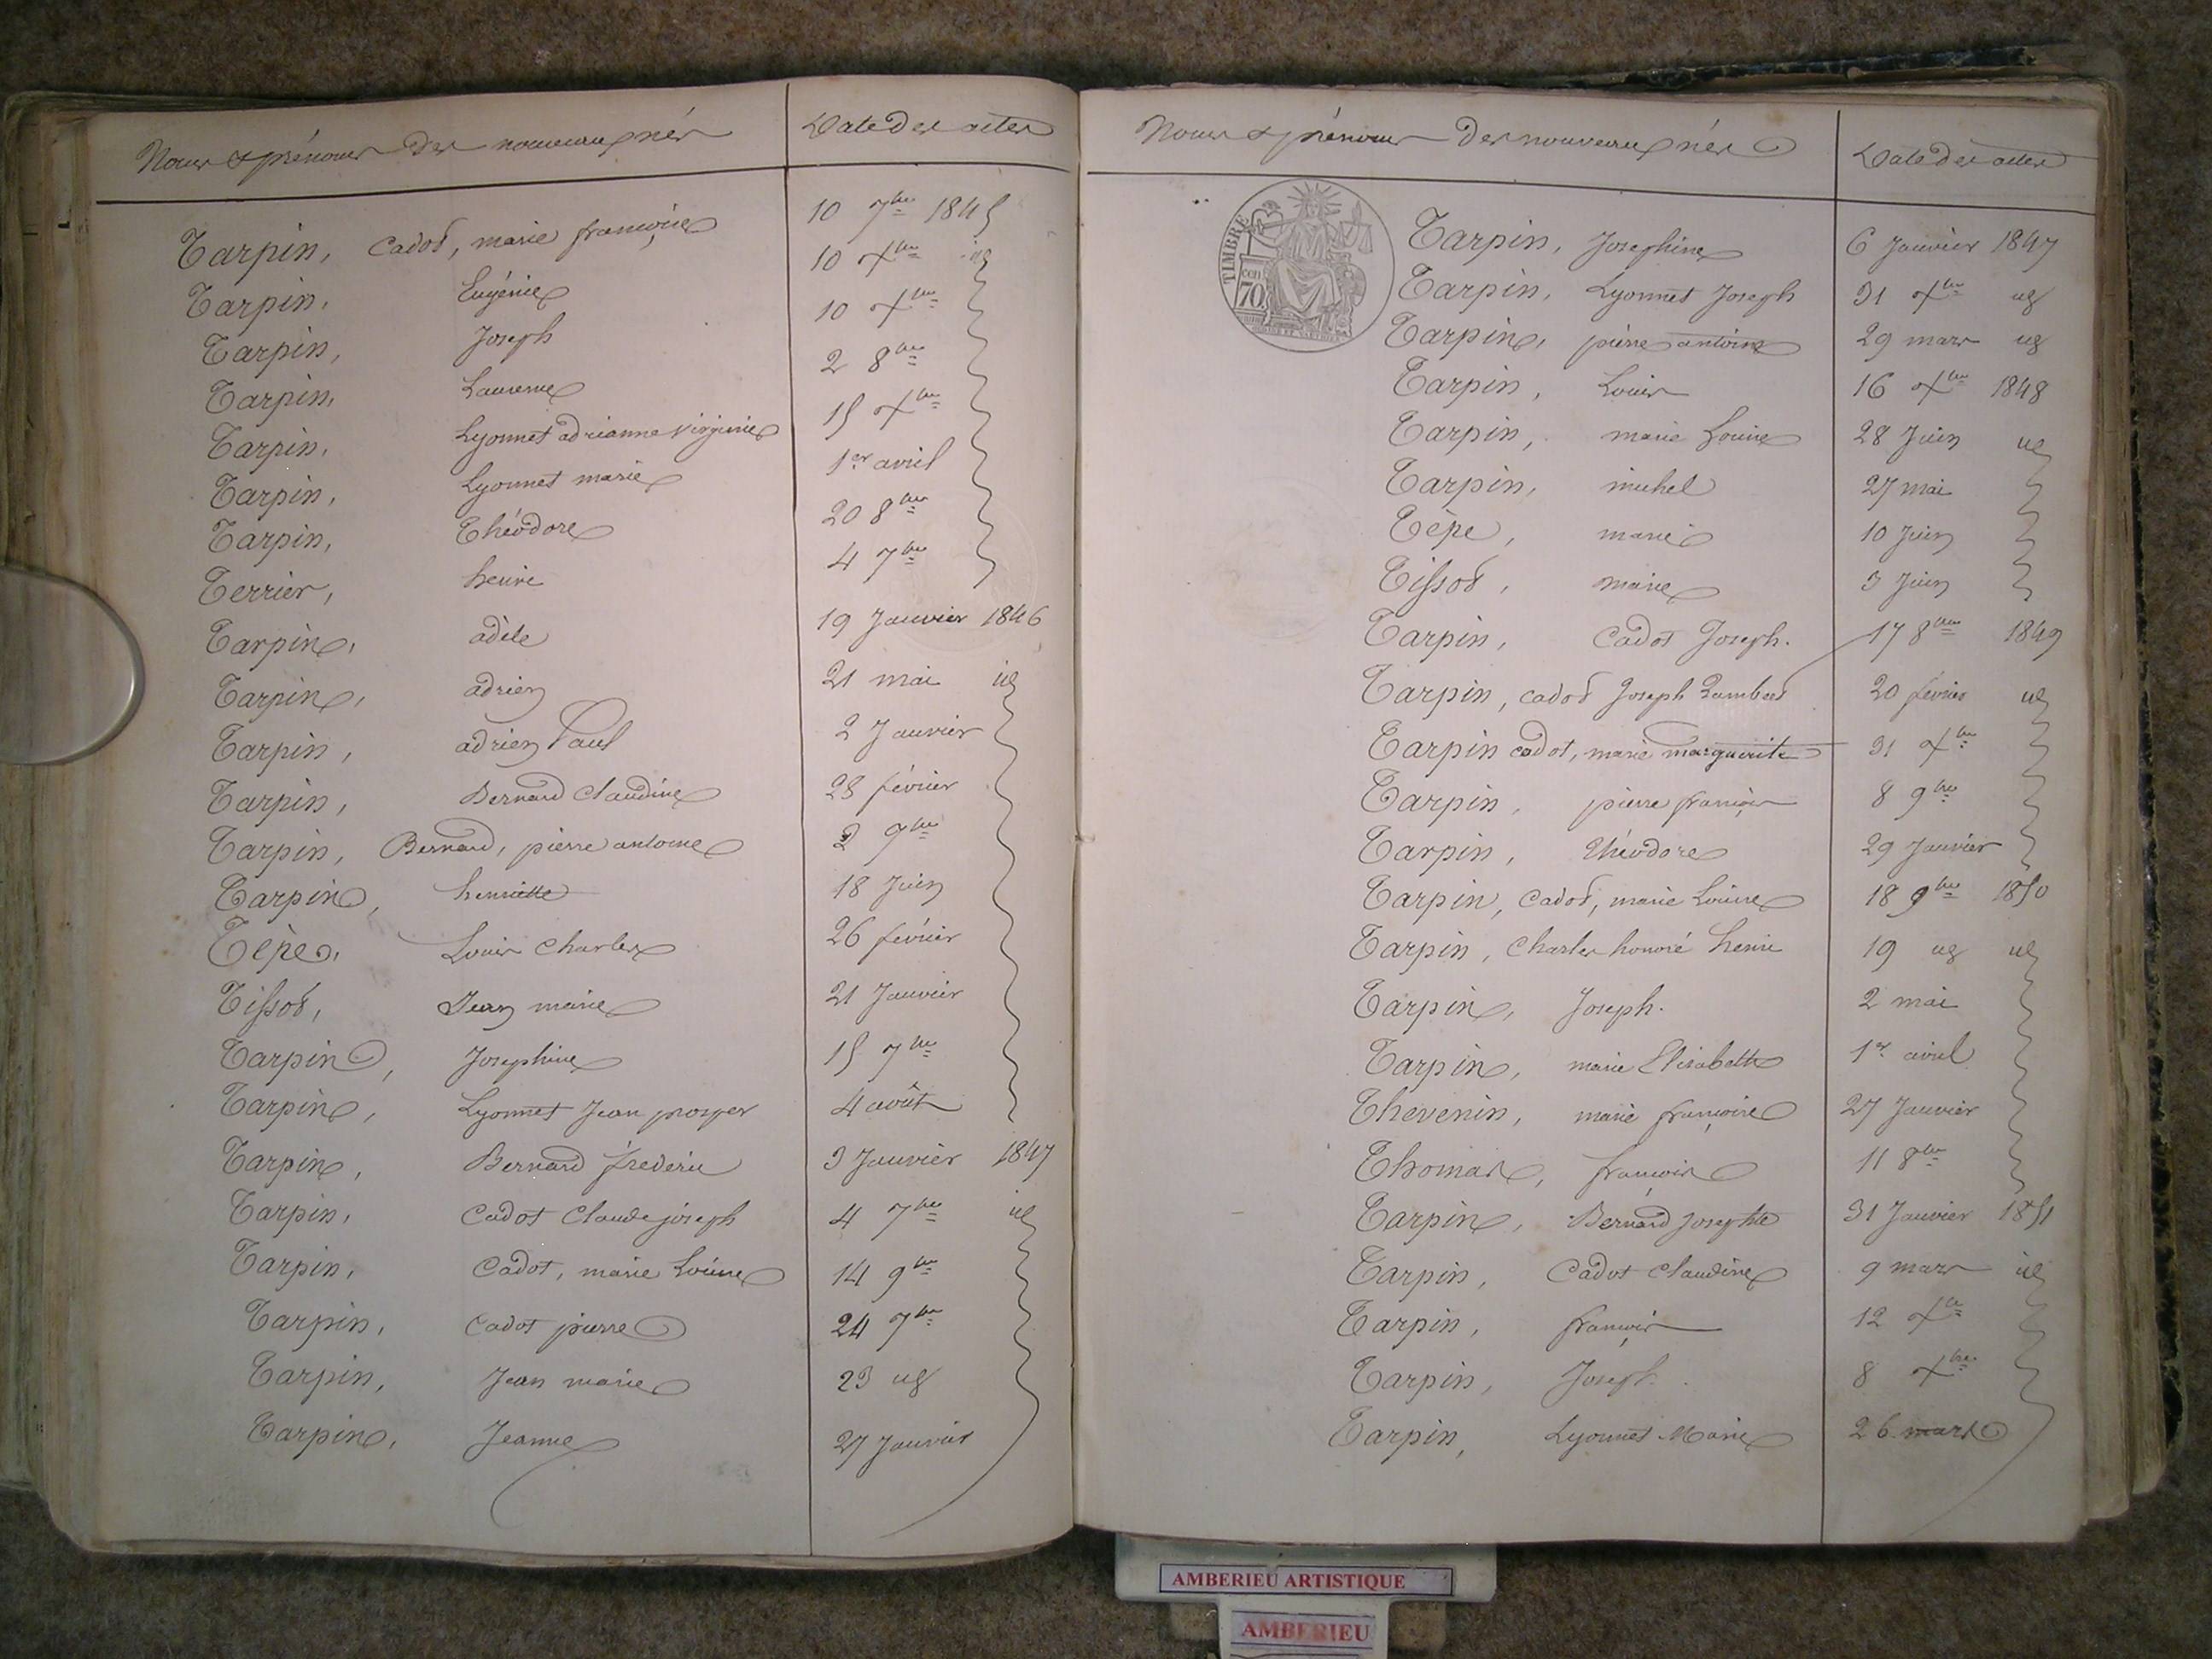 Noms & prénoms des nouveaux nés Date des actes
Tarpin, Cadot, marie françoise 10 7bre 1845
Tarpin, Eugénie 10 Xbre id
Tarpin, Joseph 10 Xbre
Tarpin, Laurence 2 8bre
Tarpin, Lyonnet adrianne virginie 15 Xbre
Tarpin, Lyonnet marie 1er avril
Tarpin, Théodore 20 8bre
Terrier, henri 4 7bre
Tarpin, adèle 19 Janvier 1846
Tarpin, adrien 21 mai id
Tarpin, adrien Paul 2 Janvier
Tarpin, Bernard Claudine 28 février
Tarpin, Bernard, pierre antoine 2 9bre
Tarpin, henriette 18 Juin
Tèpe, Louis Charles 26 février
Tissot, Jean marie 21 Janvier
Tarpin, Josephine 15 7bre
Tarpin, Lyonnet Jean prosper 4 août
Tarpin, Bernard fréderic 3 Janvier 1847
Tarpin, Cadot Claude joseph 4 7bre id
Tarpin, Cadot, marie Louise 14 9bre
Tarpin, Cadot pierre 24 7bre
Tarpin, Jean marie 23 id
Tarpin, Jeanne 27 Janvier
Noms & prénoms des nouveaux nés Date des actes
TIMBRE
70
Tarpin, Josephine 6 Janvier 1847
Tarpin, Lyonnet Joseph 31 Xbre id
Tarpin, pierre antoine 29 mars id
Tarpin, Louis 16 Xbre 1848
Tarpin, marie Louise 28 Juin id
Tarpin, michel 27 mai
Tèpe, marie 10 Juin
Tissot, marie 3 Juin
Tarpin, Cadot Joseph. 17 8bre 1849
Tarpin, cadot Joseph Lambert 20 février id
Tarpin cadot, marie marguerite 31 Xbre
Tarpin, pierre françois 8 9bre
Tarpin, théodore 29 Janvier
Tarpin, Cadot, marie Louise 18 9bre 1850
Tarpin, Charles honoré henri 19 id id
Tarpin, Joseph. 2 mai
Tarpin, marie Elisabeth 1er avril
Thevenin, marie françoise 27 Janvier
Thomas, françois 11 8bre
Tarpin, Bernard josephte 31 Janvier 1851
Tarpin, Cadot Claudine 9 mars id
Tarpin, françois 12 Xbre
Tarpin, Joseph. 8 Xbre
Tarpin, Lyonnet Marie 26 mars
AMBERIEU ARTISTIQUE
AMBERIEU